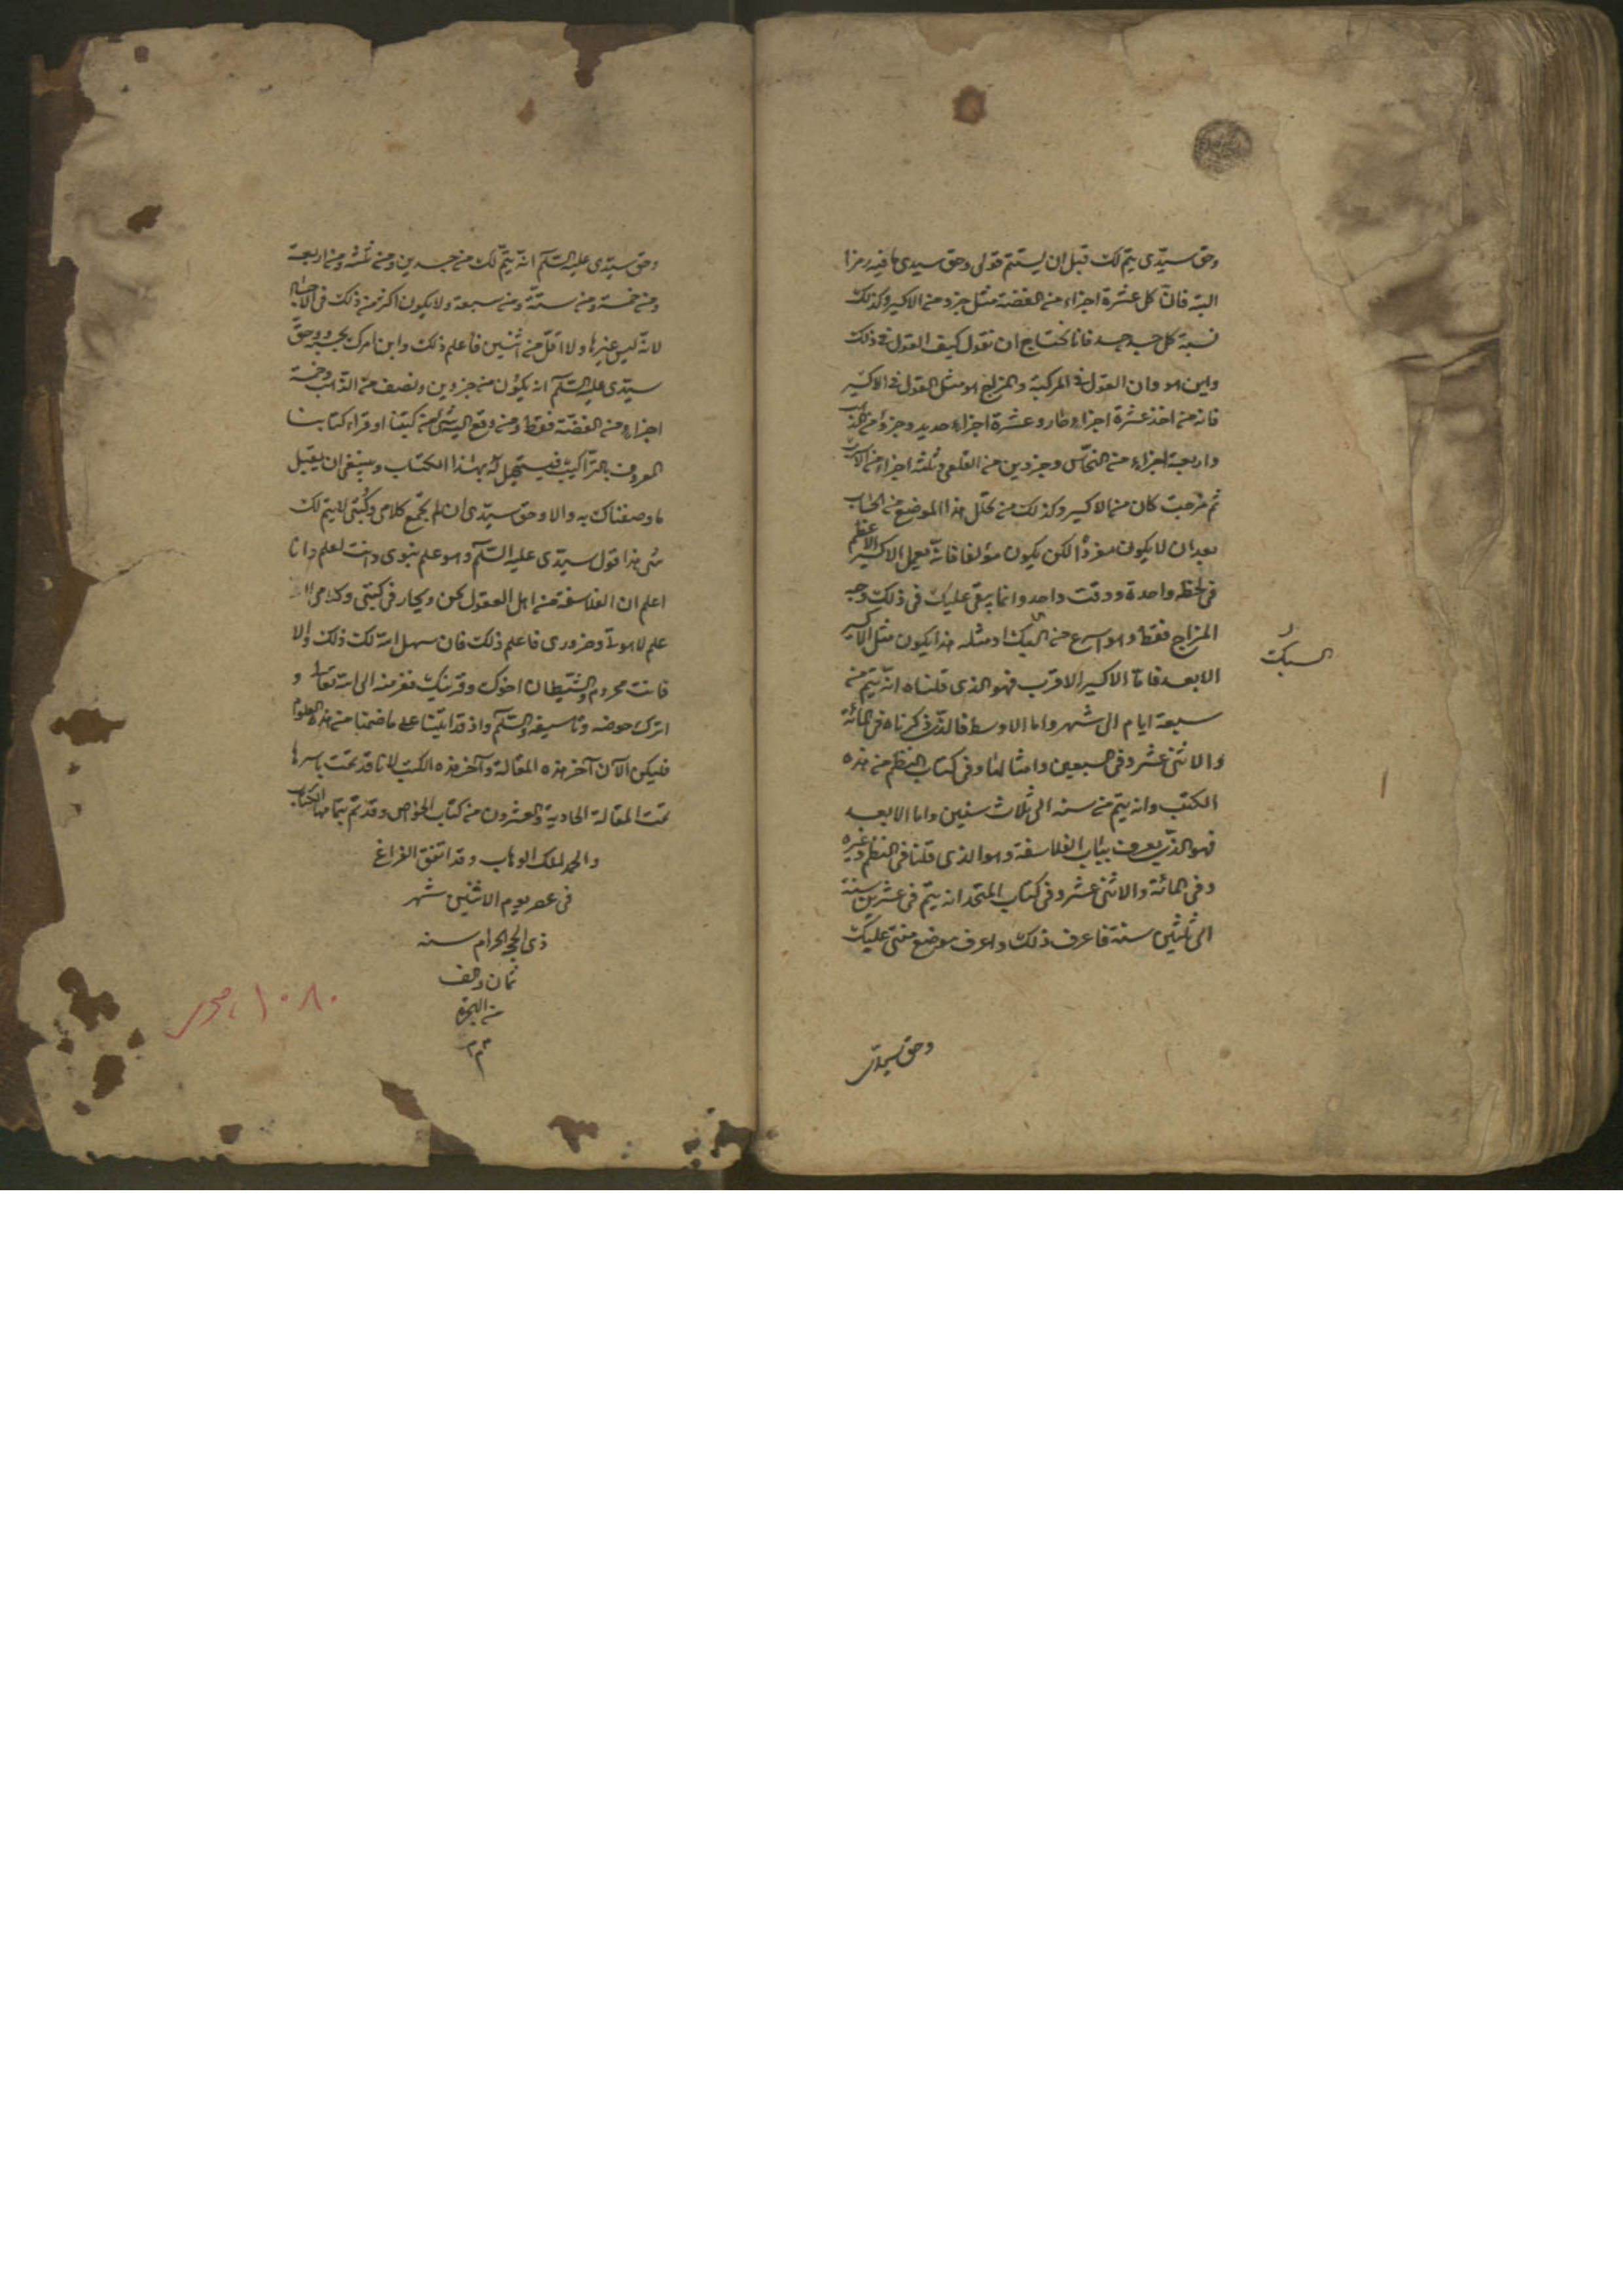 وحق سيّدى يتم لك قبل ان يستتم قولى وحق سيدى ما فيه رمزا
البتة فانّ كل عشرة اجزاء من الفضة مثل جزء من الاكسير وكذلك
نسبة كل جسد جسد فانا نحتاج ان نقول كيف القول فى ذلك
واين هو وان القول فى المركبة والمزاج هو مثل القول فى الاكسير
فانه من اخذ عشرة اجزاء وعشرة اجزاء حديد وجزؤ من الذهب
واربعة اجزاء من النحّاس وجزوين من القلعى وثلثة اجزاء من الاسرب
ثم مزجت كان منه الاكسير وكذلك من تخلل هذا الموضع من الحساب
بعد ان لا يكون مفردًا لكن يكون مؤلفا فانّه يعمل الاكسير الاعظم
فى لحظه واحدة ووقت واحد وانما يبقى عليك فى ذلك وجه
المزاج فقط وهو اسرع من ومثله هذا يكون مثل الاكسير
السبك
الابعد فامّا الاكسير الاقرب فهو الذى قلناه انّه يتم من
سبعة ايام الى شهر واما الاوسط فالذى ذكرناه فى المائة
والاثنى عشر وفى السبعين وامثالنا وفى كتاب النظم من هذه
الكتب وانه يتم من سنه الى ثلاث سنين واما الابعد
فهو الذى يعرف بباب الفلاسفة وهو الذى قلنا فى النظم وغيره
وفى المائة والاثنى عشر وفى كتاب المتحد انه يتم فى عشرين سنة
الى ثلثين سنة فاعرف ذلك واعرف موضع منتى عليك
وحق سيدى
وحق سيّدى عليه السّلم انّه يتمّ لك من جسدين ومن ثلثه ومن اربعة
ومن خمسة ومن ستّة ومن سبعة ولا يكون اكثر من ذلك فى الاجساد
لانّه ليس غيرها ولا اقل من اثنين فاعلم ذلك وابن امرك بحسبه وحقّ
سيّدى عليه السّلم انه يكون من جزوين ونصف من الذهب وخمسة
اجزاء من الفضّة فقط ومن وقع اليه شئ من كتبنا او قراء كتابنا
المعروف بالتراكيب فيستحيل له بهذا الكتاب وينبغى ان يقبل
ما وصفناك به والا وحق سيّدى ان لم تجمع كلامى وكتبى لا يتم لك
شى هذا قول سيّدى عليه السّلم وهو علم نبوى وانت تعلم وانا
اعلم ان الفلاسفة من اهل العقول تجن وتحار فى كتبى وكلامى
علم لاهوتى وضرورى فاعلم ذلك فان سهل الله لك ذلك والا
فانت محروم والشّيطان اخوك وقرينك ففر منه الى الله تعالى و
اترك خوضه وتاسيفه والسّلم واذ قد اتينا على ما ضمنا من هذه العلوم
فليكن الآن آخر هذه المقالة وآخر هذه الكتب لانا قد تمت باسرها
تمت المقالة الحادية والعشرون من كتاب الخواص وقد تم بتمامها الكتاب
والحمد لملك الوهاب وقد اتفق الفراغ
فى عصر يوم الاثنين شهر
ذى الحج الحرام سنه
ثمان والف
من الهجرة
م م م
۱۰۸۰